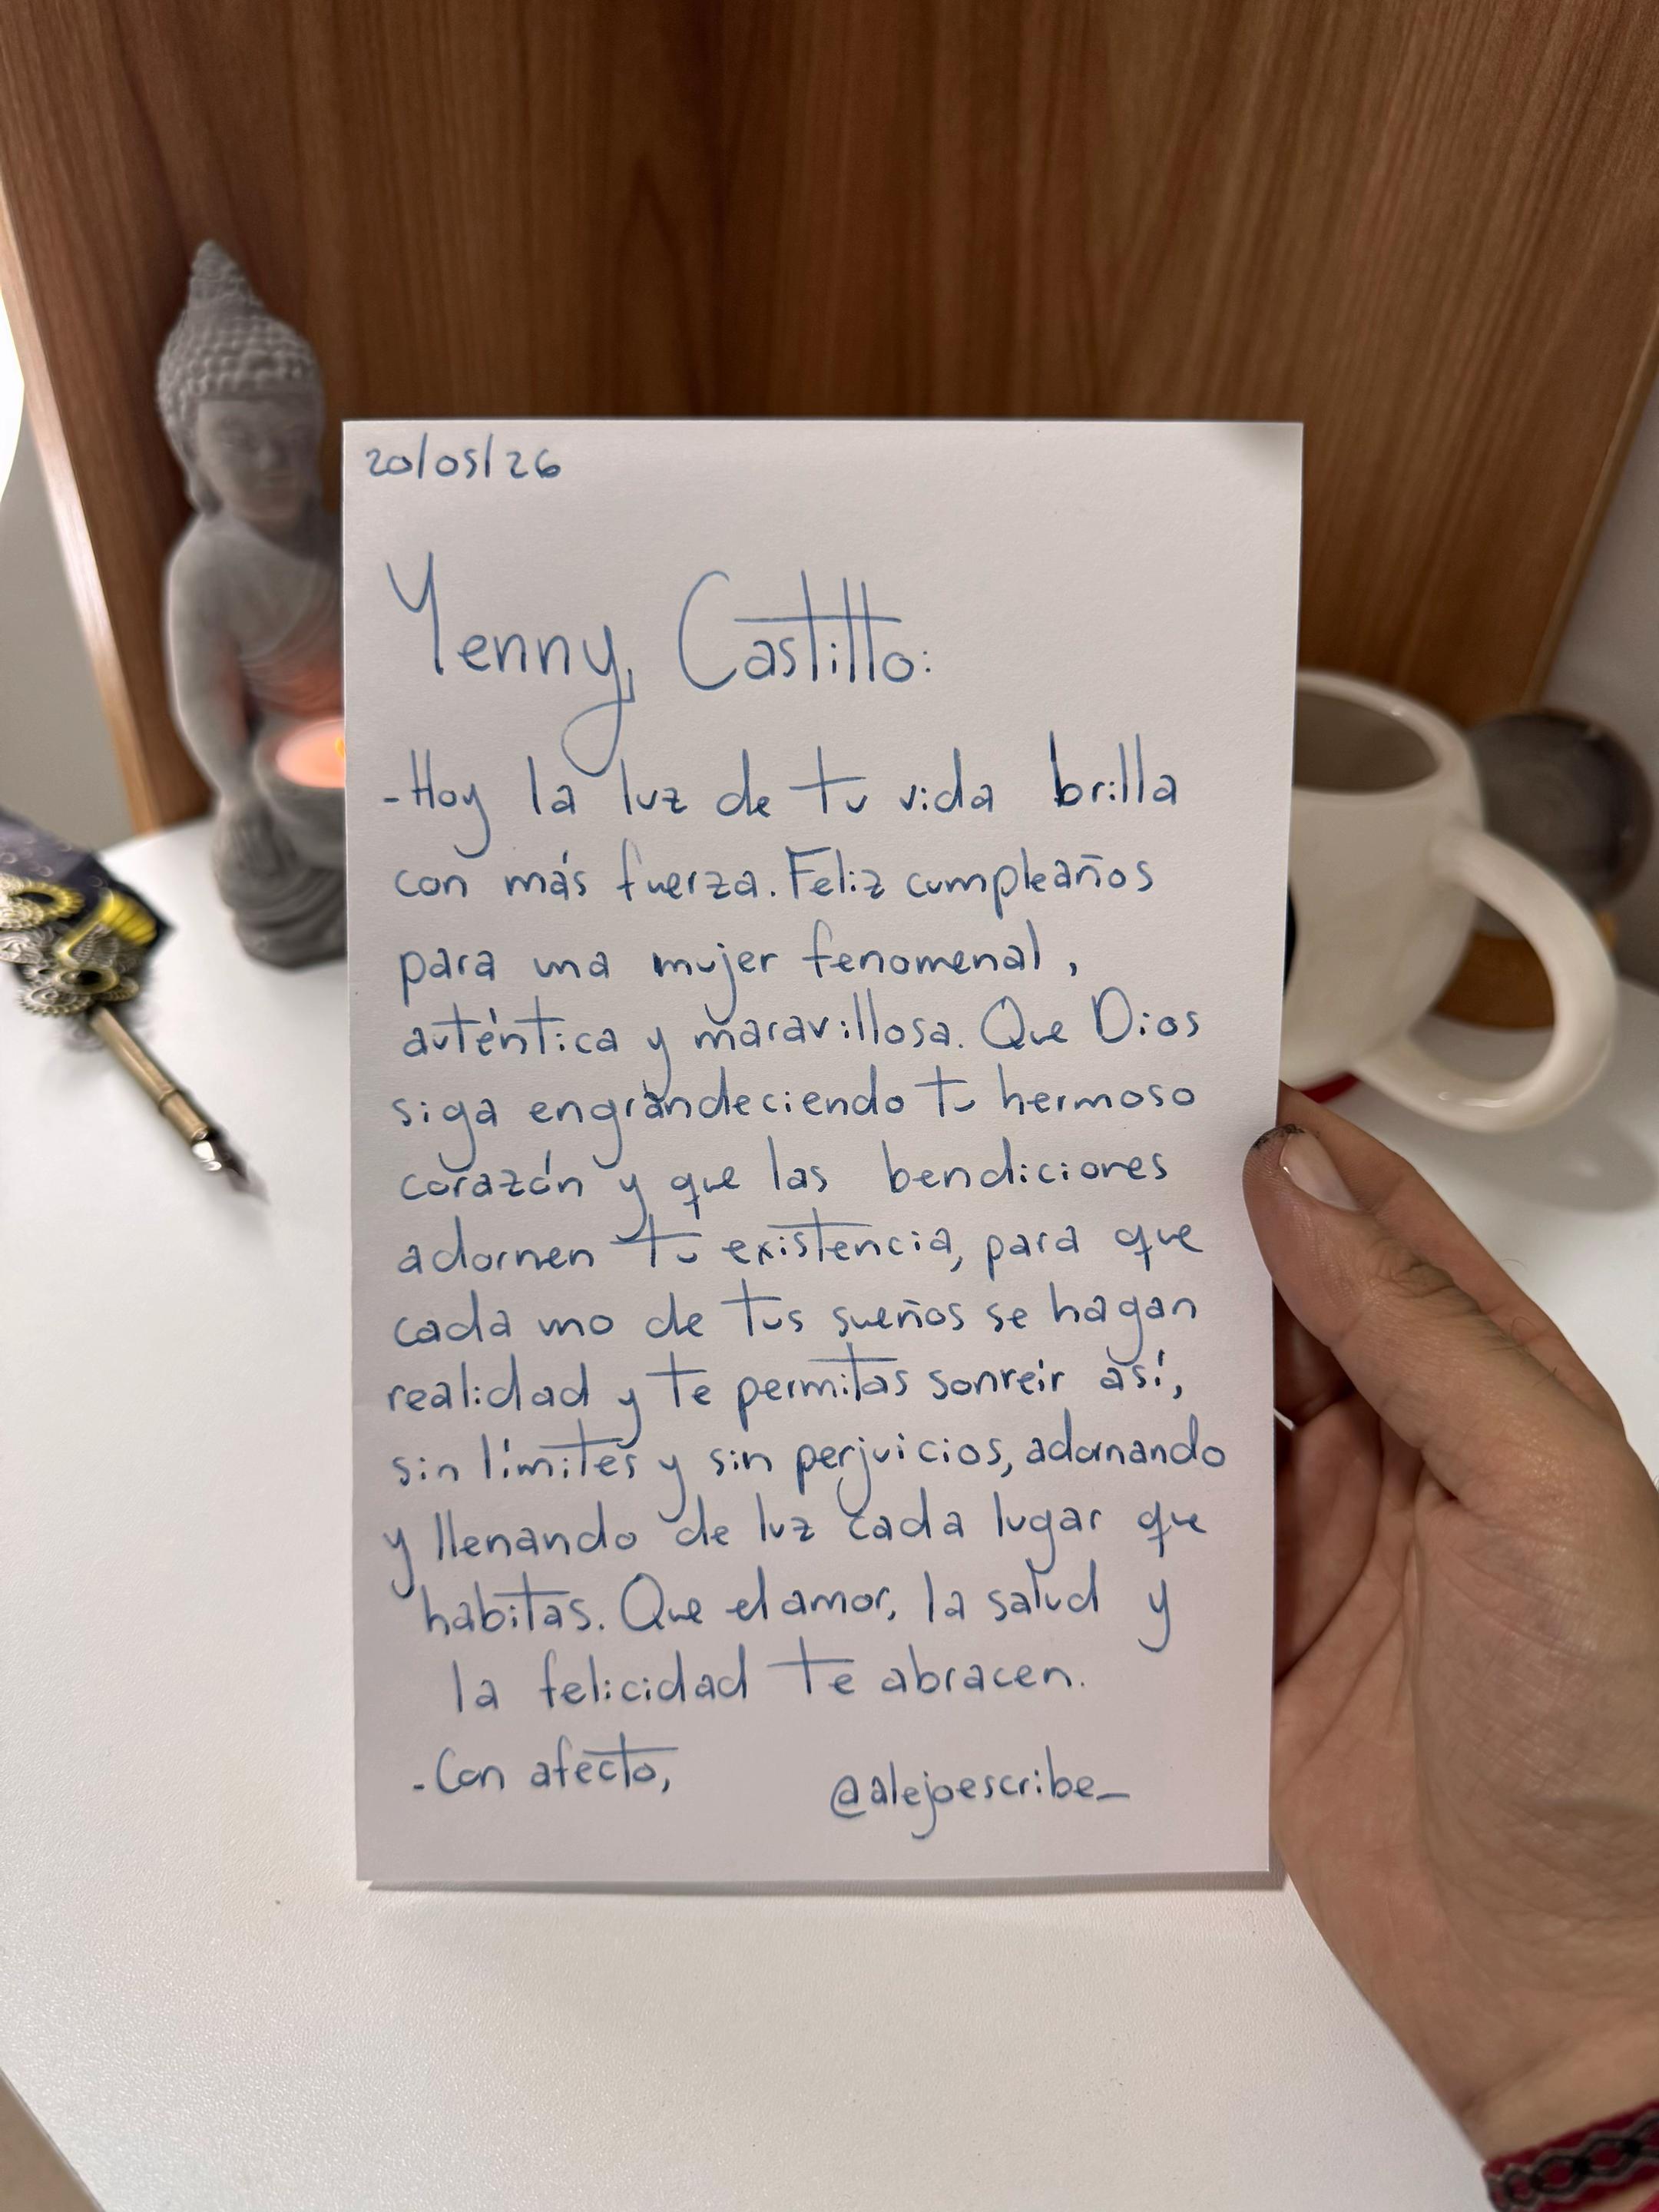 20/05/26
Yenny, Castillo:
-Hoy la luz de tu vida brilla
con más fuerza. Feliz cumpleaños
para una mujer fenomenal,
auténtica y maravillosa. Que Dios
siga engrandeciendo tu hermoso
corazón y que las bendiciones
adornen tu existencia, para que
cada uno de tus sueños se hagan
realidad y te permitas sonreir así,
sin límites y sin perjuicios, adornando
y llenando de luz cada lugar que
habitas. Que el amor, la salud y
la felicidad te abracen.
-Con afecto, @alejoescribe_